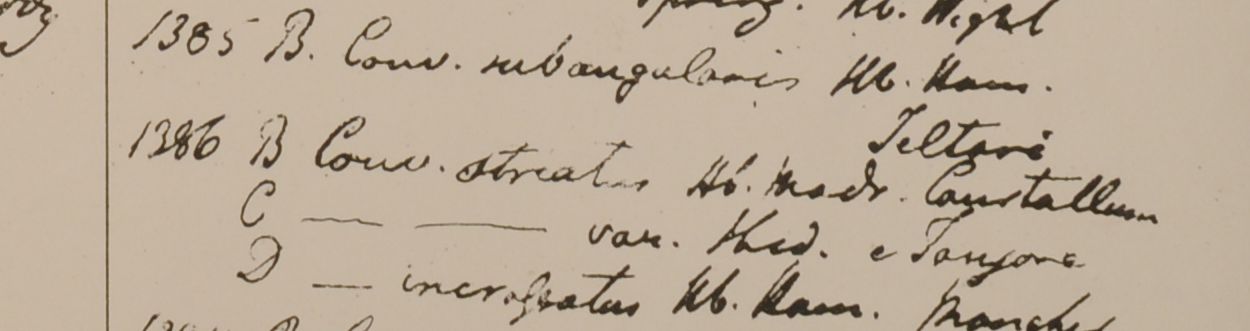 Hb. Wight
1385 B. Conv. subangularis Hb. Ham.
Teltari
1386 B Conv. striatus Hb. Madr. Courtallum
C — — var. Ibid. e Tanjore
D — incrassatus Hb. Ham.